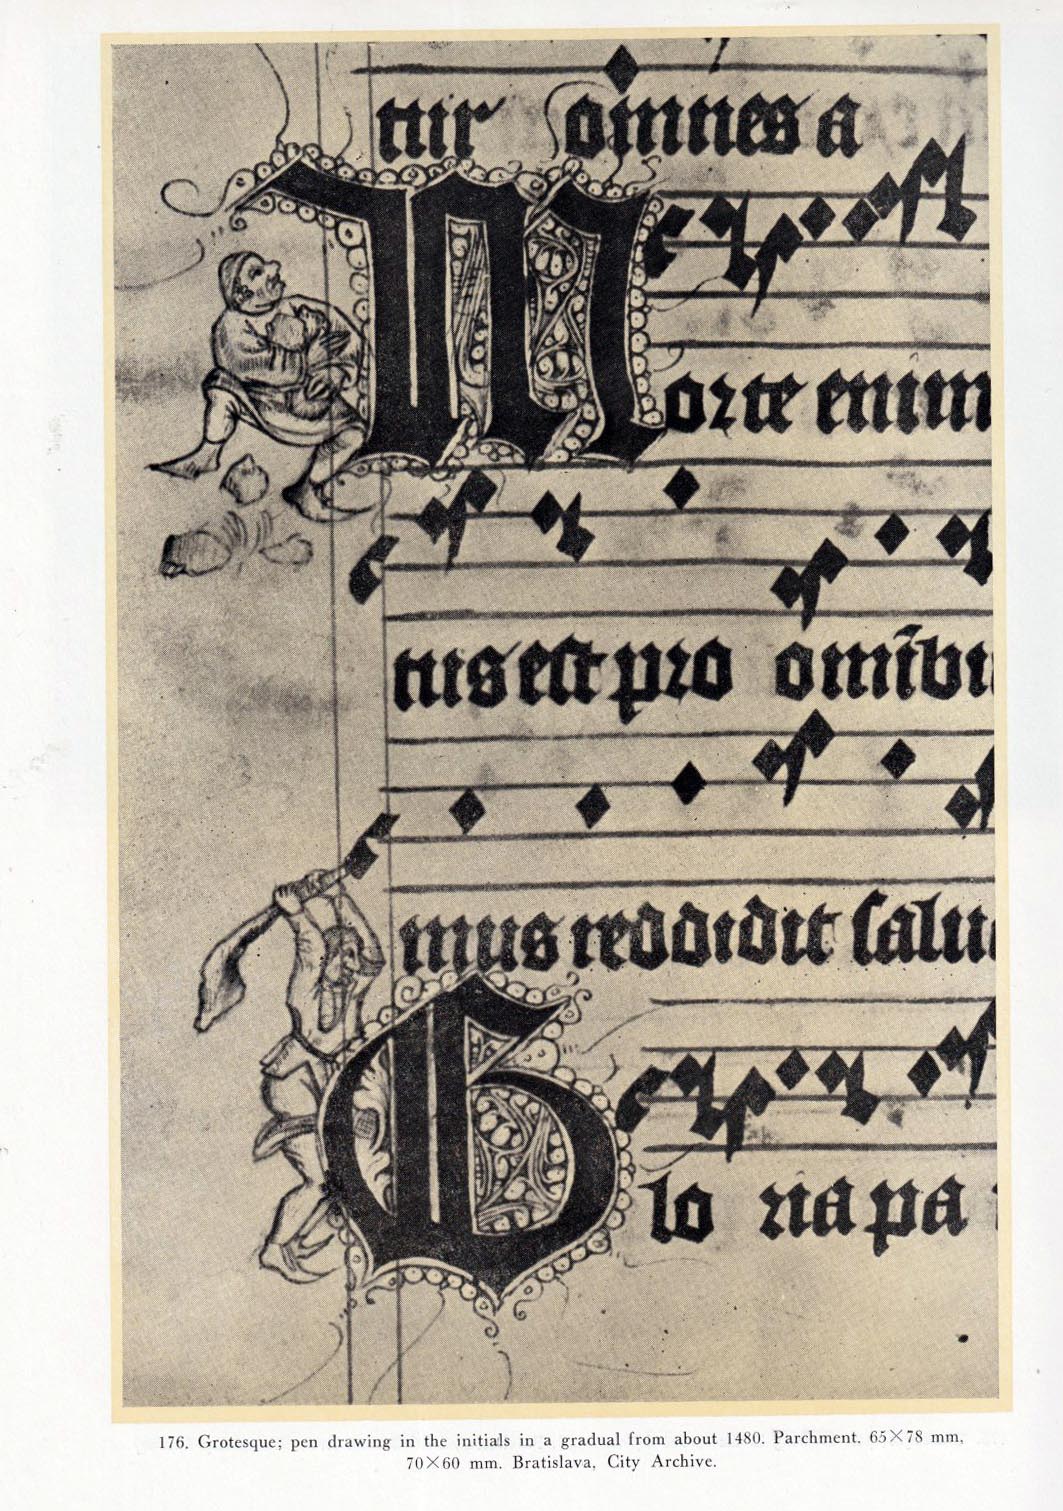 tur omnes a
Morte enim
tus est pro omību
mus reddidit salu
Glo ria pa
176. Grotesque; pen drawing in the initials in a gradual from about 1480. Parchment. 65×78 mm,
70×60 mm. Bratislava, City Archive.